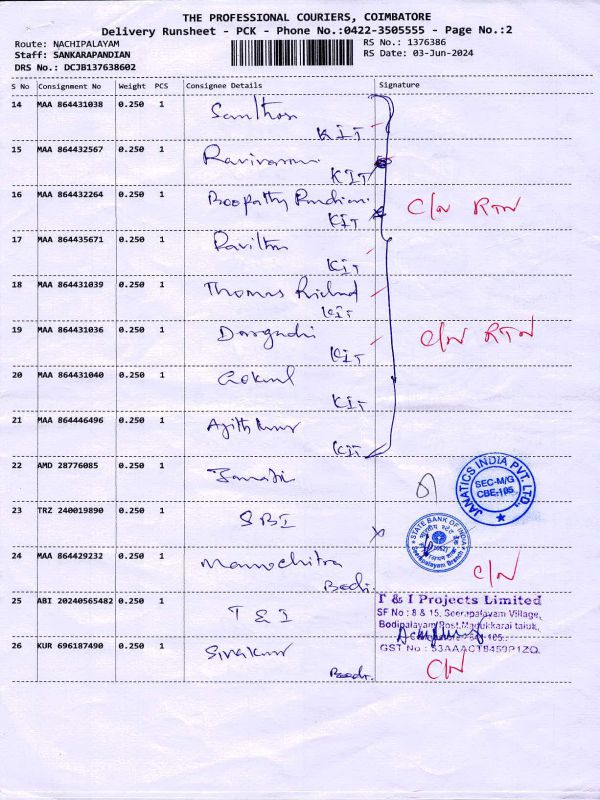 THE PROFESSIONAL COURIERS, COIMBATORE
Delivery Runsheet - PCK - Phone No.:0422-3505555 - Page No.:2
Route: NACHIPALAYAM RS No.: 1376386
Staff: SANKARAPANDIAN RS Date: 03-Jun-2024
DRS No.: DCJB137638602
S No Consignment No Weight PCS Consignee Details Signature
14 MAA 864431038 0.250 1 Santhosh
KIT
15 MAA 864432567 0.250 1
KIT
16 MAA 864432264 0.250 1 Boopathy C/N RTN
KIT
17 MAA 864435671 0.250 1
KIT
18 MAA 864431039 0.250 1 Thomas Richard
KIT
19 MAA 864431036 0.250 1 C/N RTN
KIT
20 MAA 864431040 0.250 1 Gokul
KIT
21 MAA 864446496 0.250 1 Ajith Kumar
KIT
22 AMD 28776085 0.250 1
JANATICS INDIA PVT. LTD.,
SEC-M/G
CBE-105
23 TRZ 240019890 0.250 1 SBI
STATE BANK OF INDIA
Seerapalayam Branch
24 MAA 864429232 0.250 1 Manochitra C/N
Bodi.
25 ABI 20240565482 0.250 1 T & I
T & I Projects Limited
SF No : 8 & 15, Seerapalayam Village,
Bodipalayam Post, Madukkarai taluk,
GST No : 33AAACT8459P1ZQ.
26 KUR 696187490 0.250 1 Sivakumar C/N
Bodi.